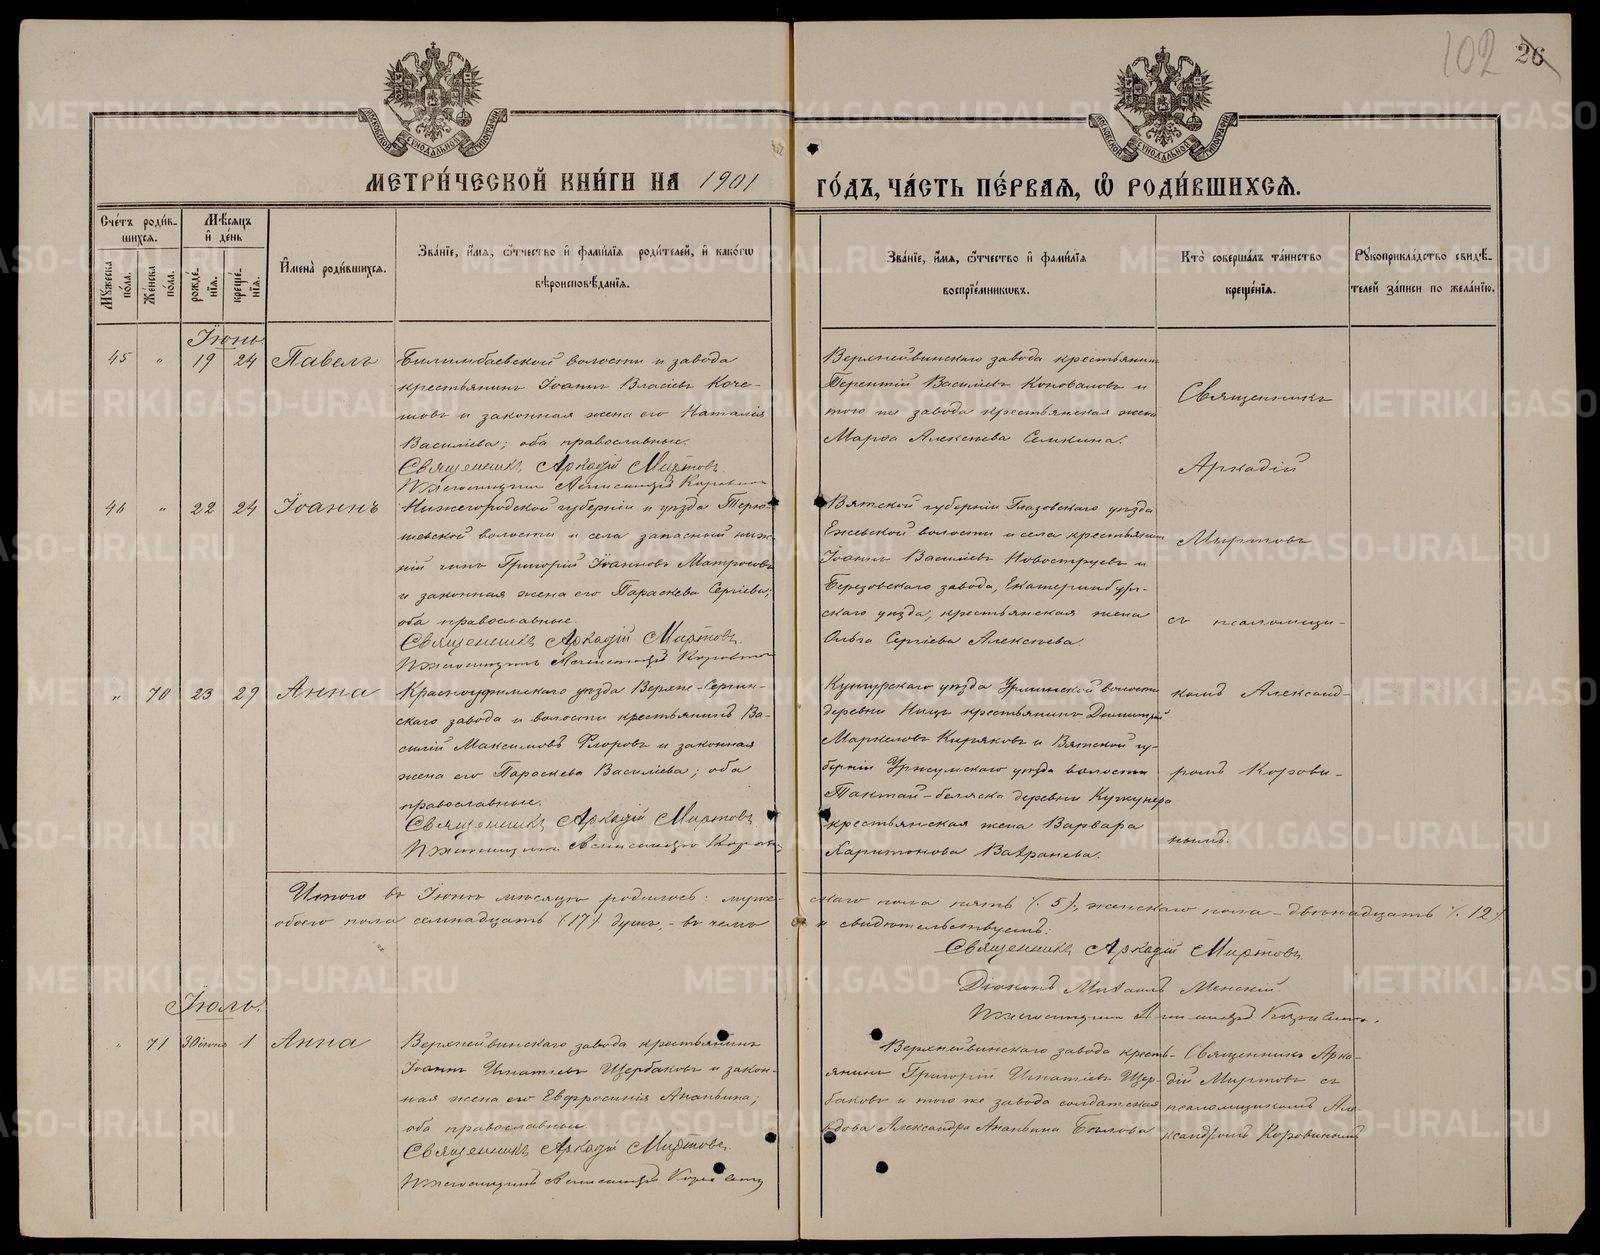 102 26
МОСКОВСКОЙ СѴНОДАЛЬНОЙ ТИПОГРАФІИ
МОСКОВСКОЙ СѴНОДАЛЬНОЙ ТИПОГРАФІИ
МЕТРИ́ЧЕСКОЙ КНИ́ГИ НА 1901 ГО́ДЪ, ЧА́СТЬ ПЕ́РВАЯ, Ѡ РОДИ́ВШИХСЯ.
Сче́тъ роди́в-
шихся.
Мѣ́сяцъ
и де́нь
Мꙋ́жеска по́ла.
Же́нска по́ла.
рожде́-
нїя.
креще́-
нїя.
И҆мена̀ роди́вшихся.
Зва́нїе, и҆́мя, ѻ҆́тчество и҆ фами́лїя роди́телей, и҆ како́гѡ
вѣроисповѣ́данїя.
Зва́нїе, и҆́мя, ѻ҆́тчество и҆ фами́лїя
воспрїе́мниковъ.
Кто̀ соверша́лъ та́инство
креще́нїя.
Рꙋкоприкла́дство свидѣ́-
телей за́писи по жела́нїю.
Іюнь.
45 " 19 24 Павелъ
Билимбаевской волости и завода
крестьянинъ Іоаннъ Власіевъ Коче-
товъ и законная жена его Наталія
Василіева; оба православные.
Священникъ Аркадій Миртовъ.
Псаломщикъ Александръ Коровинъ
Верхнейвинскаго завода крестьянинъ
Терентій Василіевъ Коновалов и
того же завода крестьянская жена
Марѳа Алексѣева Семкина.
46 " 22 24 Іоаннъ
Нижегородской губерніи и уѣзда Терю-
шевской волости и села запасный ниж-
ній чинъ Григорій Іоанновъ Матросовъ
и законная жена его Параскева Сергіева;
оба православные.
Священникъ Аркадій Миртовъ.
Псаломщикъ Александръ Коровинъ
Вятской губерніи Глазовскаго уѣзда
Ежевской волости и села крестьянинъ
Іоаннъ Василіевъ Новоструевъ и
Березовскаго завода, Екатеринбург-
скаго уѣзда, крестьянская жена
Ольга Сергіева Алексѣева.
" 70 23 29 Анна
Красноуфимскаго уѣзда Верхне-Сергин-
скаго завода и волости крестьянинъ Ва-
силій Максимовъ Флоровъ и законная
жена его Параскева Василіева; оба
православные.
Священникъ Аркадій Миртовъ
Псаломщикъ Александръ Коровинъ
Кунгурскаго уѣзда Урминской волости
деревни Ницъ крестьянинъ Димитрій
Маркеловъ Киряковъ и Вятской гу-
берніи Уржумскаго уѣзда волости
Токтай-беляска деревни Кужунера
крестьянская жена Варвара
Харитонова Вахранева.
Священникъ
Аркадій
Миртовъ
съ псаломщи-
комъ Александ-
ромъ Корови-
нымъ.
Итого въ Іюнѣ мѣсяцѣ родилось: муже-
скаго пола пять (5), женскаго пола - двѣнадцать (12)
обоего пола семнадцать (17) душъ, - въ чемъ
и свидѣтельствуемъ:
Священникъ Аркадій Миртовъ
Діаконъ Михаилъ Менскій.
Псаломщикъ Александръ Коровинъ.
Іюль.
" 71 30 іюня 1 Анна
Верхнейвинскаго завода крестьянинъ
Іоаннъ Игнатіевъ Щербаковъ и закон-
ная жена его Евфросинія Ананьина;
оба православные.
Священникъ Аркадій Миртовъ.
Псаломщикъ Александръ Коровинъ
Верхнейвинскаго завода кресть-
янинъ Григорій Игнатіевъ Щер-
баковъ и того же завода солдатская
вдова Александра Ананьина Бѣлова
Священникъ Арка-
дій Миртовъ съ
псаломщикомъ Але-
ксандромъ Коровинымъ
METRIKI.GASO-URAL.RU